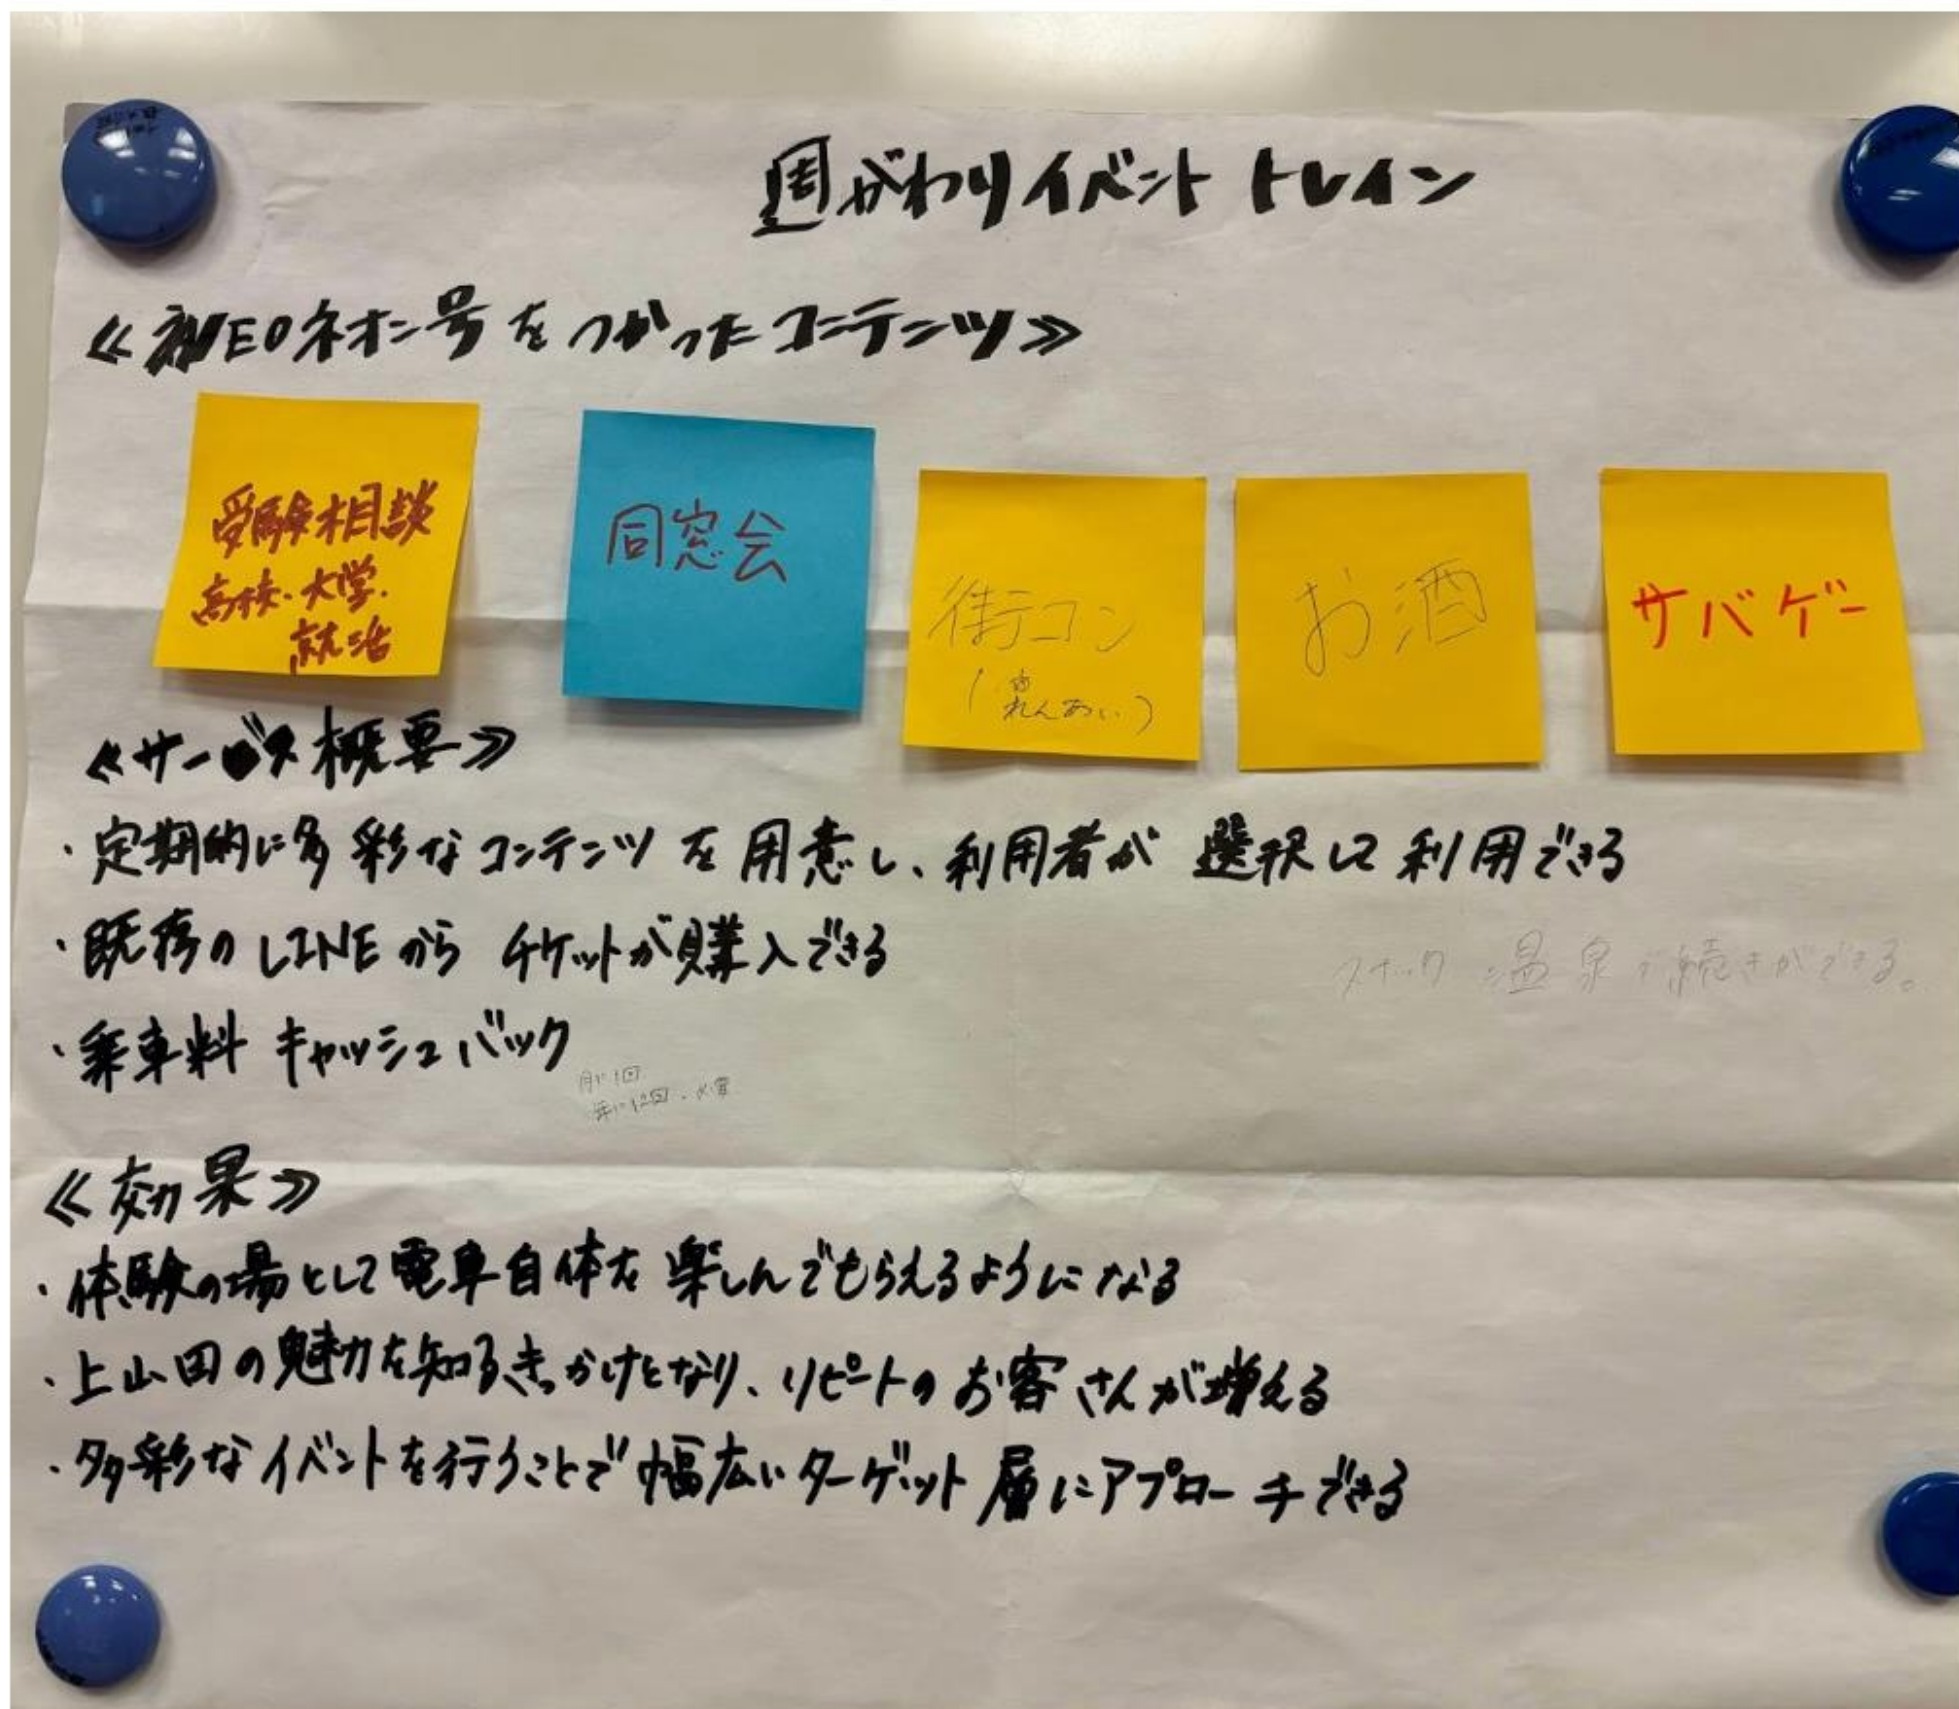 週がわりイベントトレイン
≪新NEOネオン号をつかったコンテンツ≫
受験相談
高校・大学・
就活
同窓会
街コン
(れんあい)
お酒
サバゲー
≪サービス概要≫
・定期的に多彩なコンテンツを用意し、利用者が選択して利用できる
・既存のLINEからチケットが購入できる
スナック 温泉で続きができる。
・乗車料キャッシュバック
月に1回
年に12回
≪効果≫
・体験の場として電車自体を楽しんでもらえるようになる
・上山田の魅力を知るきっかけとなり、リピートのお客さんが増える
・多彩なイベントを行うことで幅広いターゲット層にアプローチできる